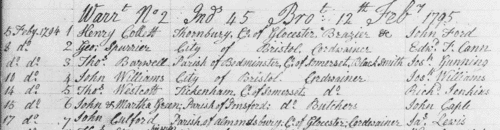 Warrt. No 2 Ind 45 Brot. 12th Feby 1795
5 Feby. 1794 1 Henry Collett Thornbury, C. of Glocester Brazier & John Ford
8 do. 2 Geo. Spurrier City of Bristol Cordwainer Edwd. J. Cann
do do. 3 Thos. Barwell Parish of Bedminster, C. of Somerset, Black Smith Jos. Gunning
10 do. 4 John Williams City of Bristol. Cordwainer Jos. Williams
14 do 5 Thos. Westcott Tickenham, C. of Somerset do. Richd. Jenkins
15 do 6 John & Martha Green; Parish of do. Butchers John Cople
17 do. 7 John Parish of Almondsbury, C. of Glocester; Cordwainer Jas. Lewis